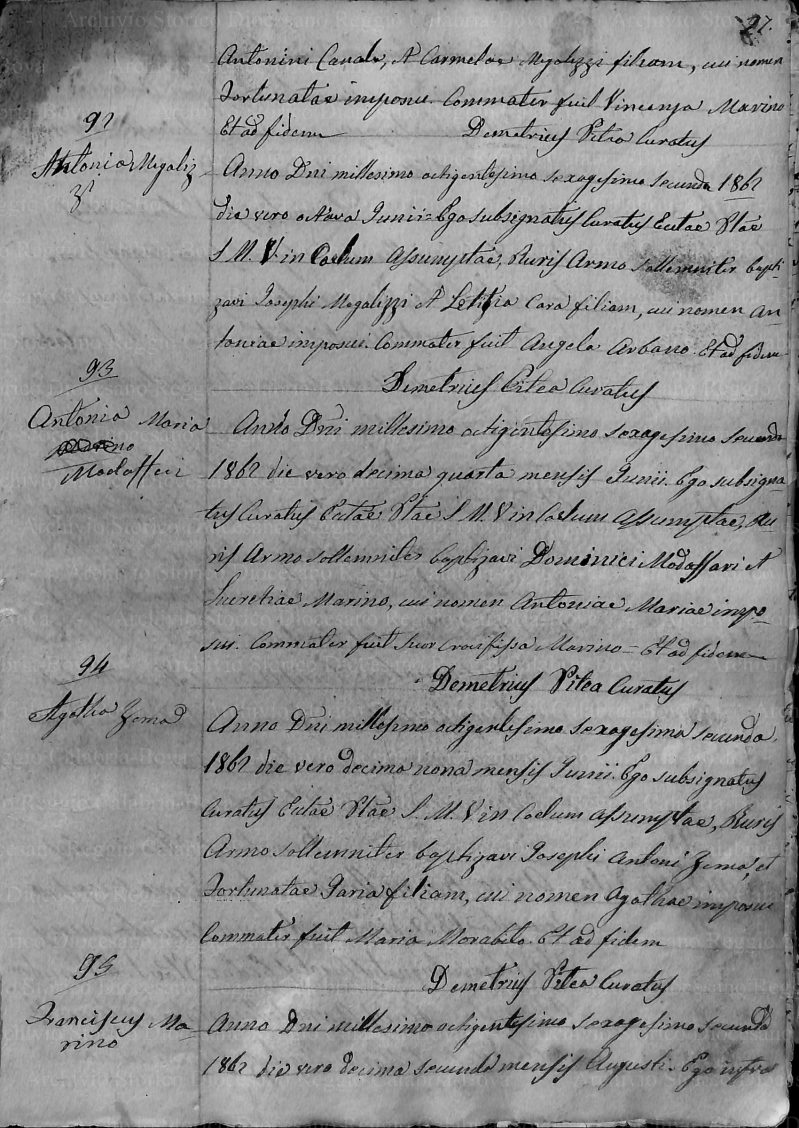 Archivio Storico Diocesano Reggio Calabria-Bova
27.
Antonini Canale, et Carmelae Megalizzi filiam, cui nomen
Fortunatae imposui. Commater fuit Vincenza Marino
Et ad fidem
Demetrius Pitea Curatus
92
Antonia Megaliz-
zi
Anno Dni millesimo octigentesimo sexagesimo secundo 1862
die vero octava Junii = Ego subsignatus Curatus Ecclae Stae
S. M. V. in Coelum Assumptae, Ruris Armo sollemniter bapti-
zavi Josephi Megalizzi et Letitia Cara filiam, cui nomen An-
toniae imposui. Commater fuit Angela Arbano. Et ad fidem
Demetrius Pitea Curatus
93
Antonia Maria
Modafferi
Anno Dni millesimo octigentesimo sexagesimo secundo
1862 die vero decima quarta mensis Junii. Ego subsigna-
tus Curatus Ecclae Stae S. M. V. in Coelum Assumptae, Ru-
ris Armo sollemniter baptizavi Dominici Modaffari et
Lucretiae Marino, cui nomen Antoniae Mariae impo-
sui. Commater fuit Suor Crocifissa Marino = Et ad fidem
Demetrius Pitea Curatus
94
Agatha Zema
Anno Dni millesimo octigentesimo sexagesimo secundo
1862 die vero decima nona mensis Junii. Ego subsignatus
Curatus Ecclae Stae S. M. V. in Coelum Assumptae, Ruris
Armo sollemniter baptizavi Josephi Antoni Zema, et
Fortunatae Taria filiam, cui nomen Agathae imposui
Commater fuit Maria Morabito. Et ad fidem
Demetrius Pitea Curatus
95
Franciscus Ma-
rino
Anno Dni millesimo octigentesimo sexagesimo secundo
1862 die vero decima secunda mensis Augusti. Ego infra